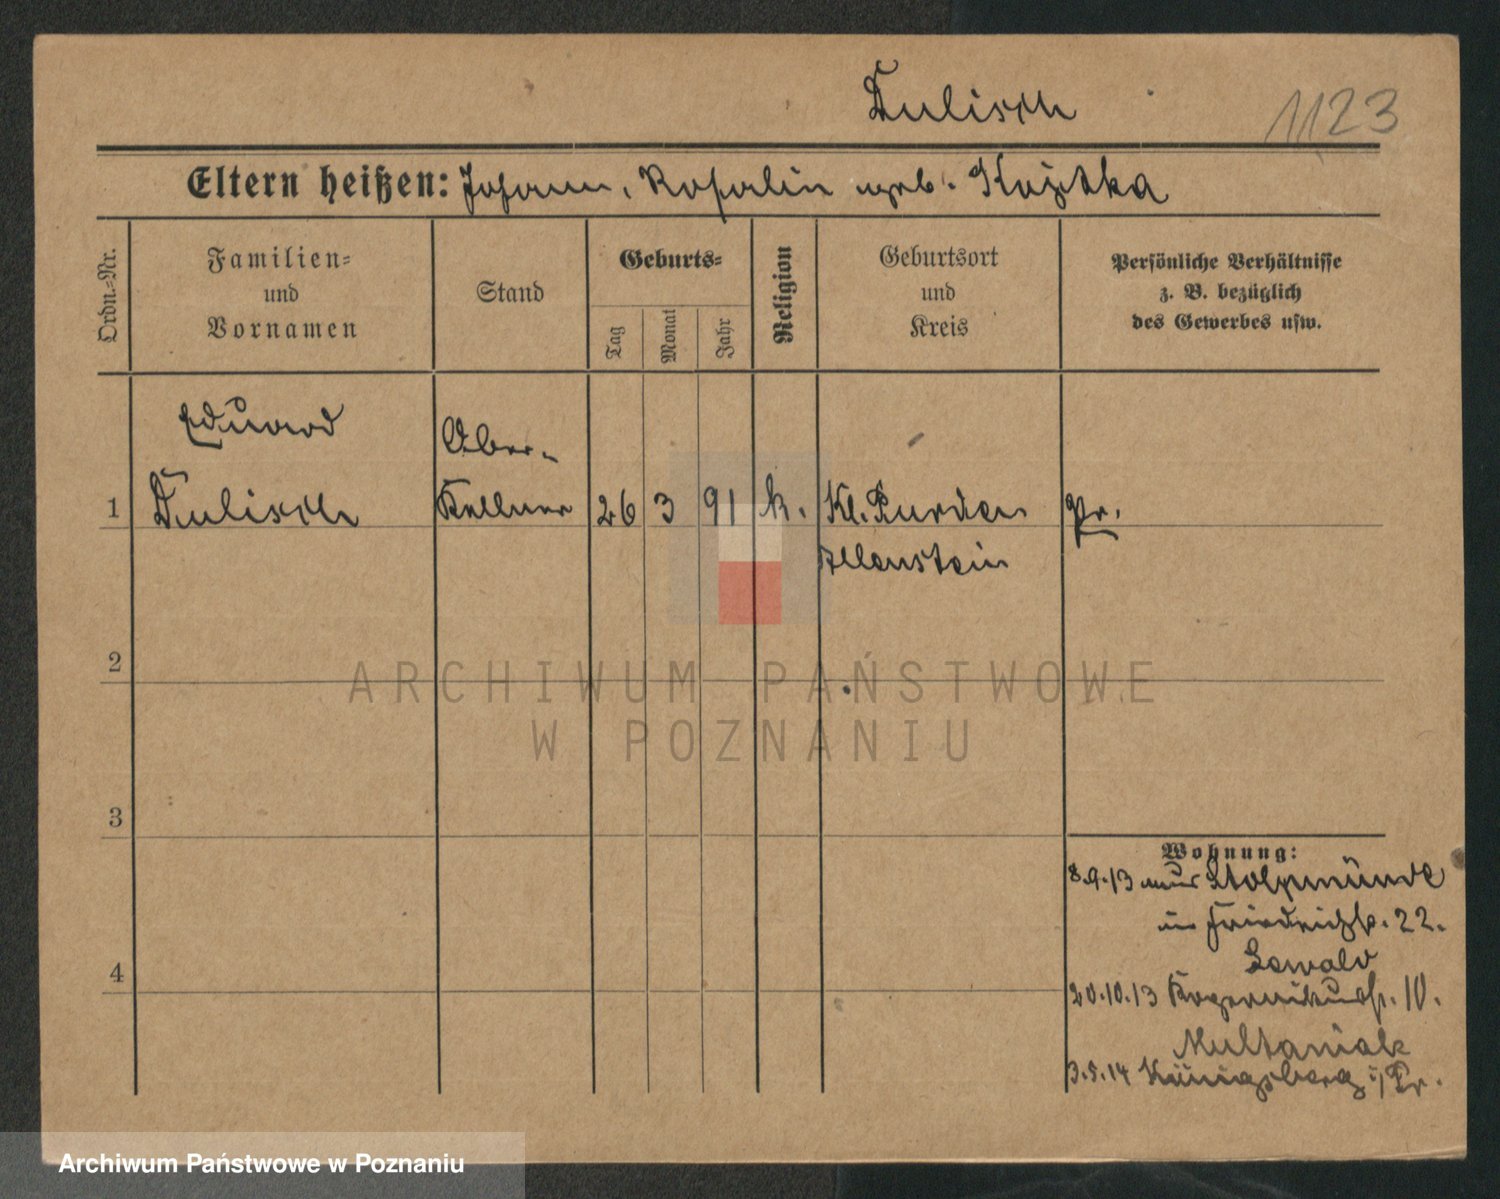 Dulisch
1123
Eltern heißen: Johann, Rosalin geb. Kozitka
Ordn.-Nr.
Familien-
und
Vornamen
Stand
Geburts-
Tag
Monat
Jahr
Religion
Geburtsort
und
Kreis
Persönliche Verhältnisse
z. B. bezüglich
des Gewerbes usw.
Eduard
Ober-
1
Dulisch
Kellner
26
3
91
k.
Kl. Purden
Pr.
Allenstein
2
ARCHIWUM PAŃSTWOWE
W POZNANIU
3
Wohnung:
8.9.13 aus Stolpmünde
in Friedrichstr. 22.
Lewald
4
20.10.13 Kopernikusstr. 10.
Multaniak
3.5.14 Königsberg i/Pr.
Archiwum Państwowe w Poznaniu